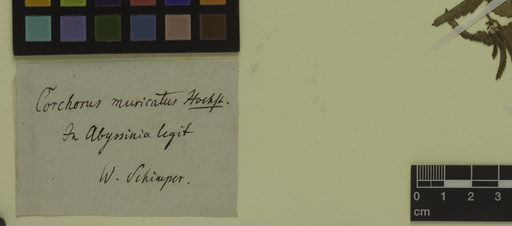 Corchorus muricatus Hochst.
In Abyssinia legit
W. Schimper.
0 1 2 3
cm